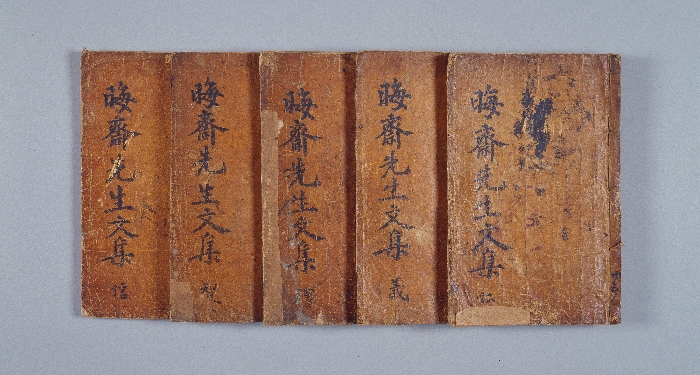 晦齋先生文集 仁
晦齋先生文集 義
晦齋先生文集 禮
晦齋先生文集 智
晦齋先生文集 信